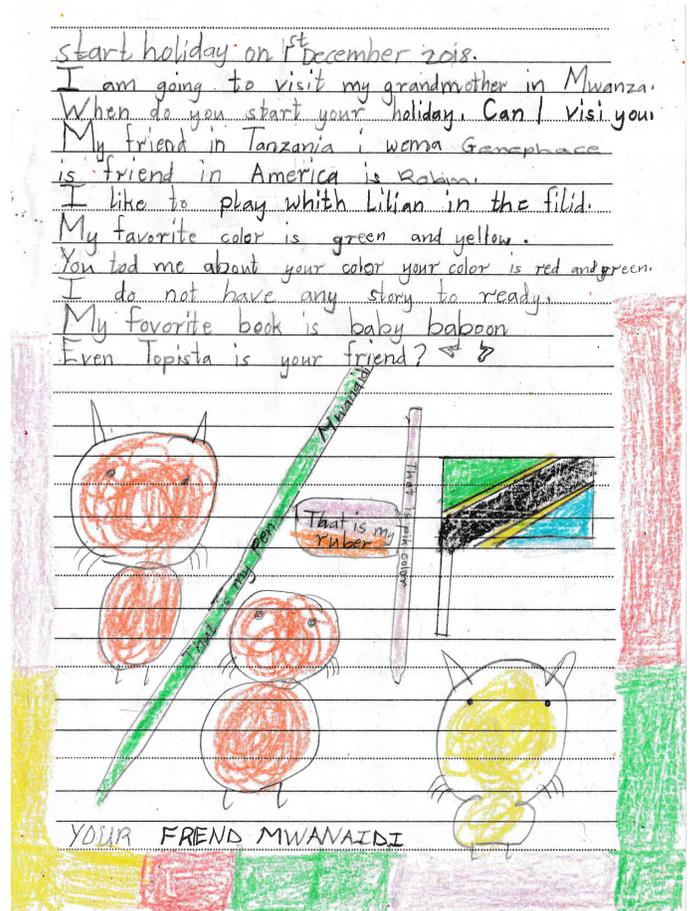 start holiday on 1st December 2018.
I am going to visit my grandmother in Mwanza.
When do you start your holiday. Can I visi you.
My friend in Tanzania i wema Genephace
is friend in America is Robin.
I like to play whith Lilian in the filid.
My favorite color is green and yellow.
You tod me about your color your color is red and green.
I do not have any story to ready.
My favorite book is baby baboon
Even Topista is your friend?
That is my pen Mwanaidi
That is my
ruber
That is pink color
YOUR FREND MWANAIDI